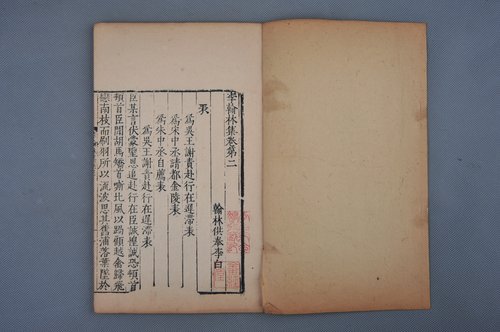 李翰林集卷第二
翰林供奉李白
表
為吳王謝責赴行在遲滯表
為宋中丞請都金陵表
為宋中丞自薦表
為吳王謝責赴行在遲滯表
臣某言伏蒙聖恩追赴行在臣誠惶誠恐頓首
頓首臣聞胡馬矯首嘶北風以跼顧越禽歸飛
戀南枝而刷羽所以流波思其舊浦落葉墜於